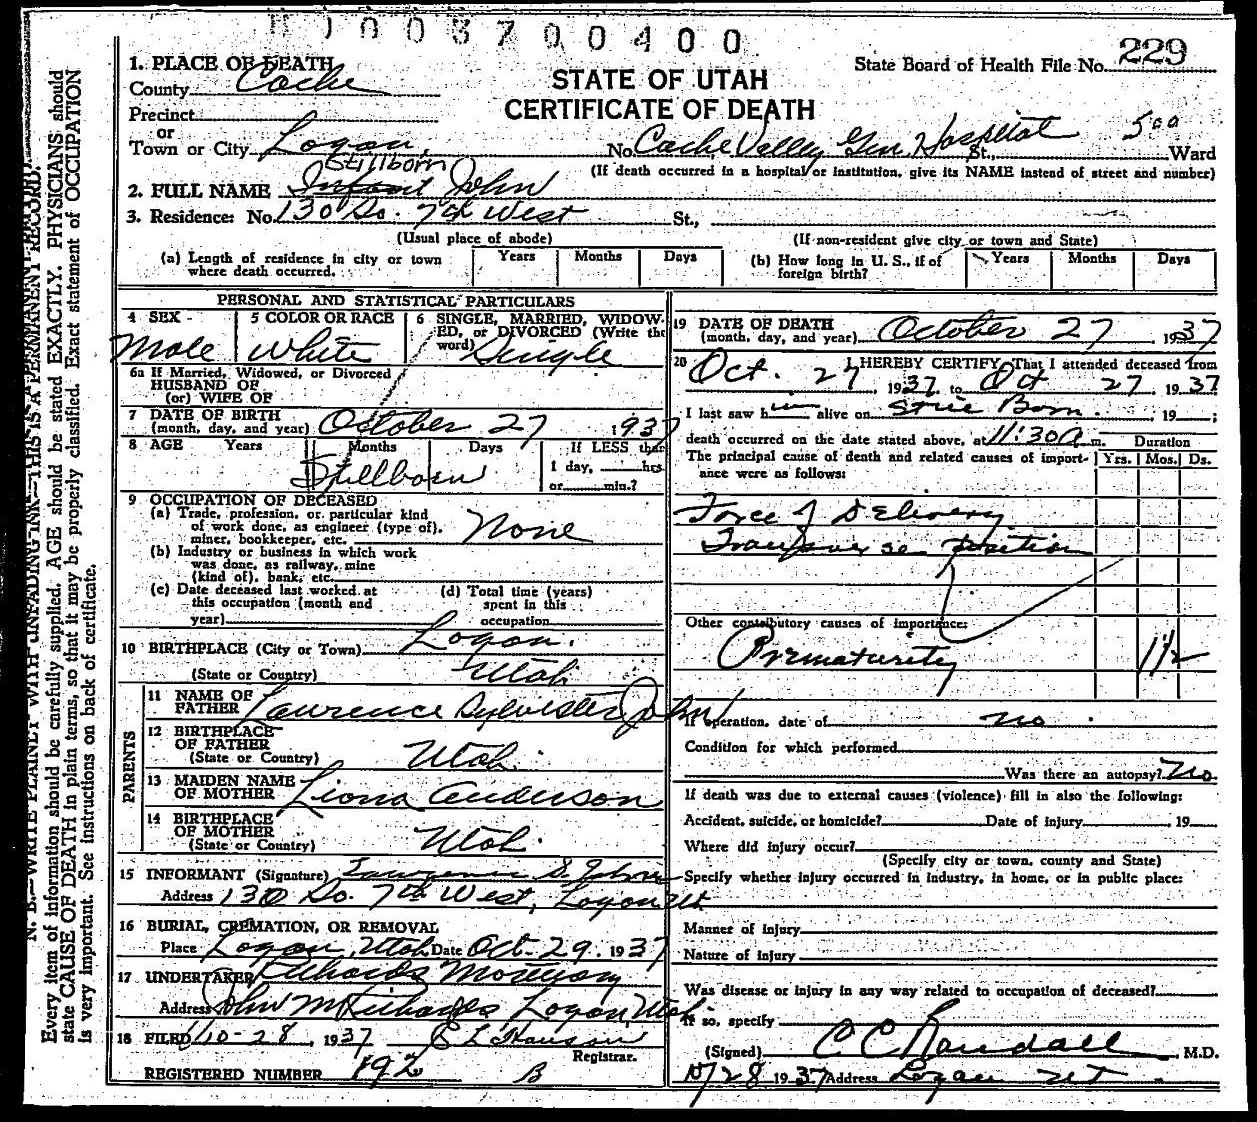 H 1 0 0 3 7 0 0 4 0 0
1. PLACE OF DEATH
County Cache
Precinct
or
Town or City Logan,
STATE OF UTAH
CERTIFICATE OF DEATH
State Board of Health File No. 229
No. Cache Valley Gen. Hospital St., 500 Ward
(If death occurred in a hospital or institution, give its NAME instead of street and number)
Stillborn
2. FULL NAME Infant John
3. Residence: No. 130 So. 7th West St.,
(Usual place of abode)
(If non-resident give city or town and State)
(a) Length of residence in city or town where death occurred. Years Months Days
(b) How long in U. S., if of foreign birth? Years Months Days
PERSONAL AND STATISTICAL PARTICULARS
4 SEX Male
5 COLOR OR RACE White
6 SINGLE, MARRIED, WIDOWED, or DIVORCED (Write the word) Single
6a If Married, Widowed, or Divorced
HUSBAND OF
(or) WIFE OF
7 DATE OF BIRTH
(month, day, and year) October 27 1937
8 AGE Years Months Days If LESS than
Stillborn 1 day, hrs.
or min.?
9 OCCUPATION OF DECEASED
(a) Trade, profession, or particular kind
of work done, as engineer (type of),
miner, bookkeeper, etc. None
(b) Industry or business in which work
was done, as railway, mine
(kind of), bank, etc.
(c) Date deceased last worked at
this occupation (month and
year)
(d) Total time (years)
spent in this
occupation
10 BIRTHPLACE (City or Town) Logan.
(State or Country) Utah
PARENTS
11 NAME OF
FATHER Lawrence Sylvester John
12 BIRTHPLACE
OF FATHER
(State or Country) Utah.
13 MAIDEN NAME
OF MOTHER Liona Anderson
14 BIRTHPLACE
OF MOTHER
(State or Country) Utah.
15 INFORMANT (Signature) Lawrence S. John
Address 130 So. 7th West, Logan Ut
16 BURIAL, CREMATION, OR REMOVAL
Place Logan, Utah Date Oct. 29. 1937
17 UNDERTAKER Richards Mortuary
Address John M Richards Logan, Utah.
18 FILED 10-28, 1937
Registrar.
REGISTERED NUMBER 192 B
19 DATE OF DEATH
(month, day, and year) October 27, 1937
20 I HEREBY CERTIFY, That I attended deceased from
Oct. 27 1937 to Oct 27 1937
I last saw him alive on Still Born. 19 ;
death occurred on the date stated above, at 11:30 a m. Duration
The principal cause of death and related causes of importance were as follows: Yrs. Mos. Ds.
Force of Delivery
Transverse position
Other contributory causes of importance:
Prematurity 1 1/2
If operation, date of no.
Condition for which performed
Was there an autopsy? No.
If death was due to external causes (violence) fill in also the following:
Accident, suicide, or homicide? Date of injury , 19
Where did injury occur?
(Specify city or town, county and State)
Specify whether injury occurred in industry, in home, or in public place:
Manner of injury
Nature of injury
Was disease or injury in any way related to occupation of deceased?
If so, specify
(Signed) C C Randall, M.D.
10/28 1937 Address Logan Ut.
N. B.—WRITE PLAINLY WITH UNFADING INK—THIS IS A PERMANENT RECORD.
Every item of information should be carefully supplied. AGE should be stated EXACTLY. PHYSICIANS should
state CAUSE OF DEATH in plain terms, so that it may be properly classified. Exact statement of OCCUPATION
is very important. See instructions on back of certificate.